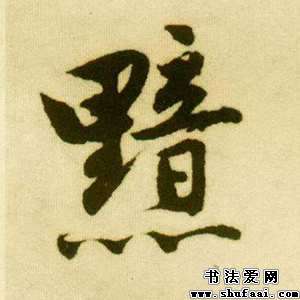 黯
书法爱网
www.shufaai.com